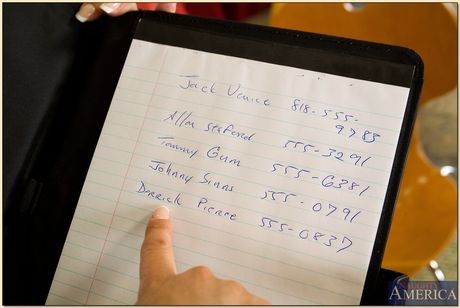 Jack Venice 818-555-
9785
Allan Stafford 555-3291
Tommy Gunn 555-6381
Johnny Sinns 555-0791
Derrick Pierce 555-0837
NAUGHTY
AMERICA